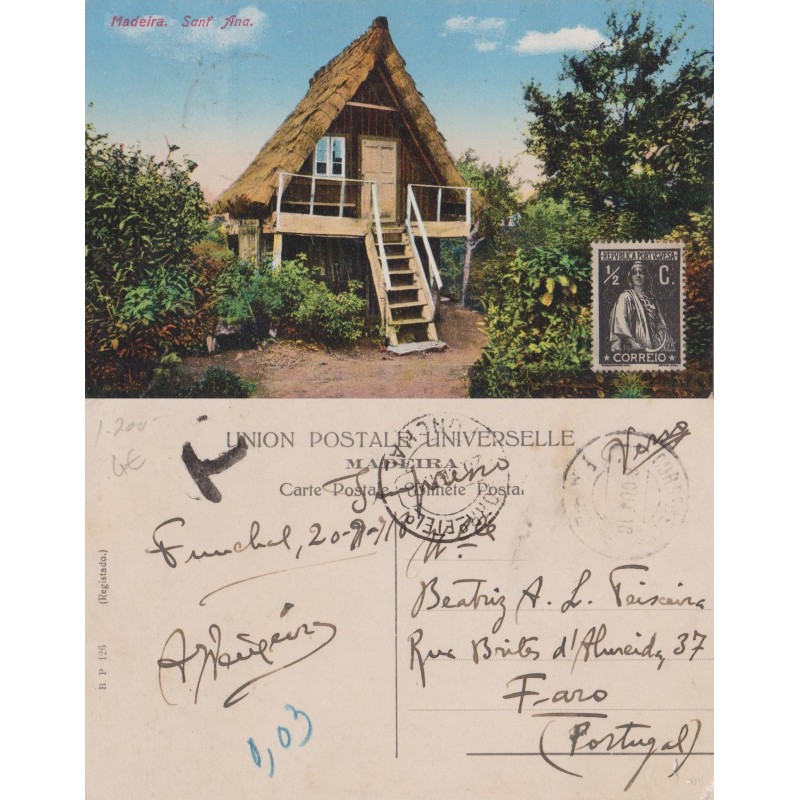 Madeira. Sant' Ana.
REPVBLICA PORTVGVESA
½ C.
CORREIO
1.200-
6€
T
UNION POSTALE UNIVERSELLE
MADEIRA
Carte Postale Bilhete Postal
Impresso
Verso
Funchal, 20-9-918
A. Teixeira
0,03
B. P. 126 (Registado.)
Beatriz A. L. Teixeira
Rua Brites d'Almeida, 37
Faro
(Portugal)